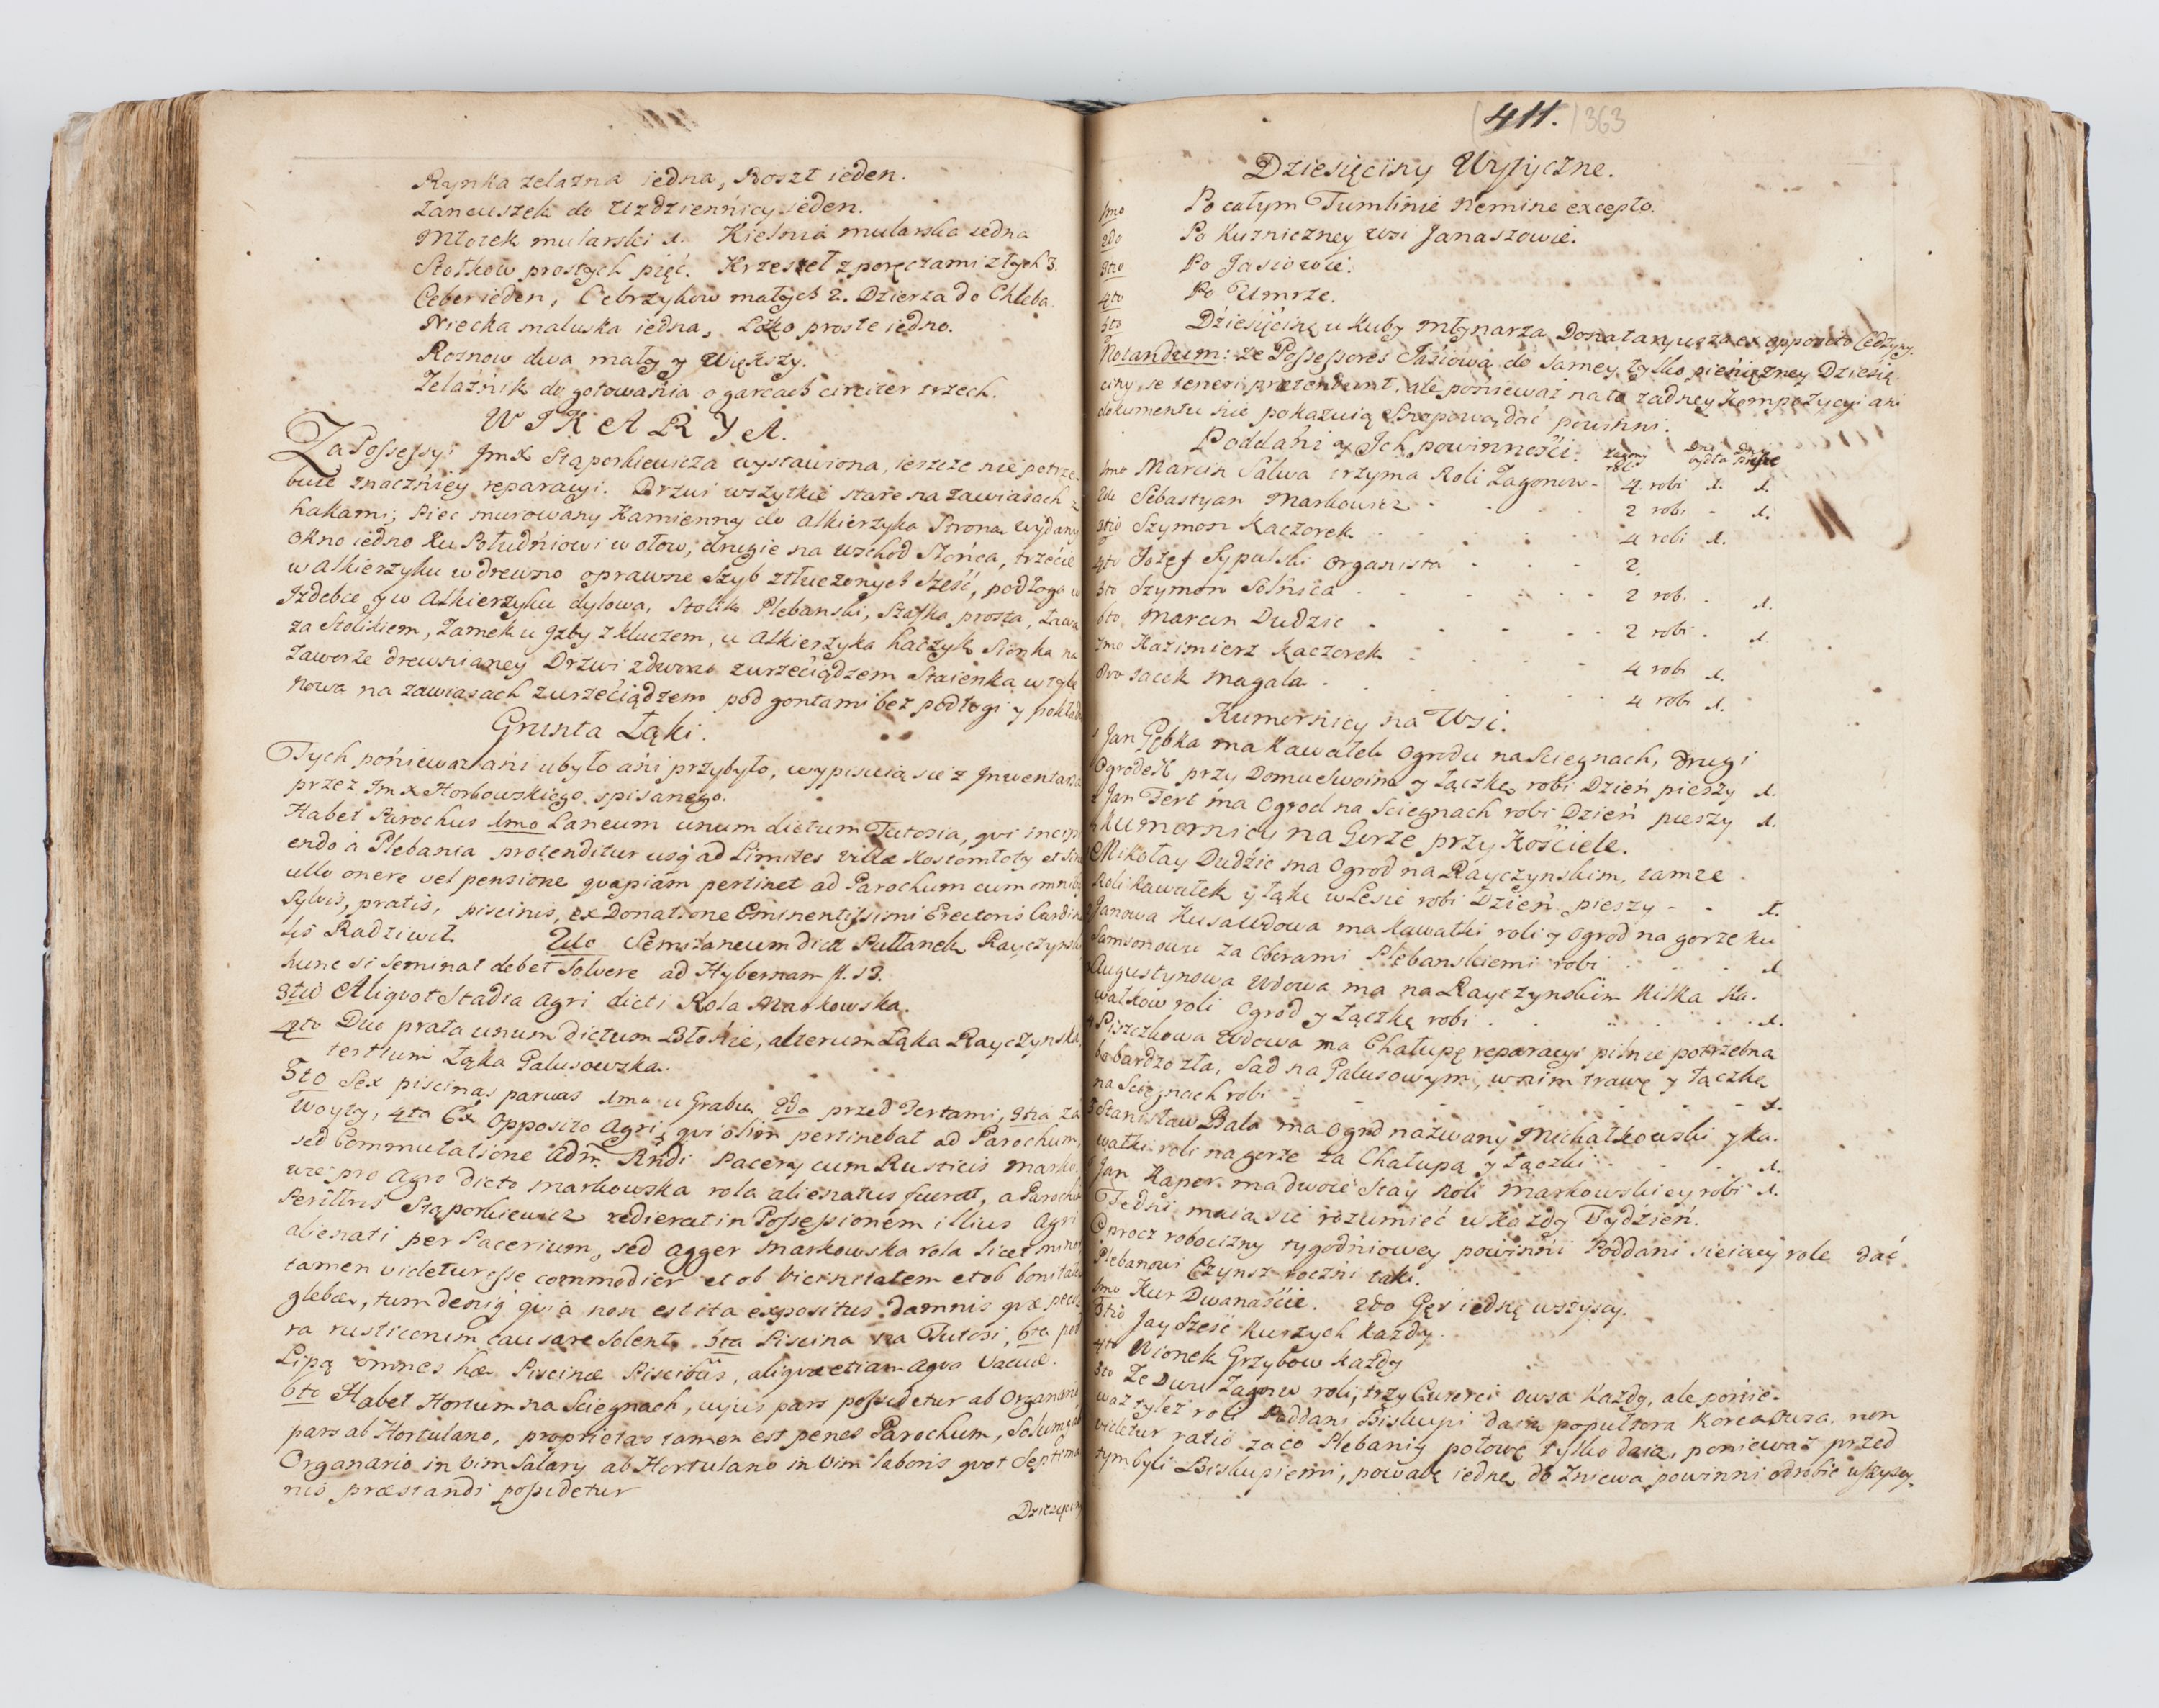 Rynka zelazna iedna, Roszt ieden.
Łancuszek do Uzdzienńicy ieden.
Młotek mularski 1. Kielnia mularska iedna
Stołkow prostych pięć. Krzeseł z poręczami złych 3.
Ceber ieden, Cebrzykow małych 2. Dzierza do Chleba
Niecka maluska iedna, Łożko proste iedno.
Roznow dwa mały y Większy.
Zelaźnik do gotowańia o garcach circiter trzech.
WIKARYA.
Za Possessyi JmX Stąporkiewicza wystawiona, ieszcze nie potrze-
buie znaczńiey reparacyi. Drzwi wszytkie stare na zawiasach z
hakami; Piec murowany Kamienny do Alkierzyka Strona wydany
Okno iedno ku Południowi w ołow, drugie na wschod Słońca, trzećie
w Alkierzyku w drewno oprawne Szyb ztłuczonych Sześć, podłoga w
Izdebce y w Alkierzyku dylowa, Stolik Plebanski, Szafka prosta, Ława
za Stolikiem, Zamek u Izby z kluczem, u Alkierzyka haczyk Sionka na
zaworze drewnianey Drzwi z dworu z wrzeciądzem Staienka w tyle
Nowa na zawiasach z wrzećiądzem pod gontami bez podłogi y pokładu
Grunta Łąki.
Tych pońieważ ańi ubyło ańi przybyło, wypisuią się z Inwentarza
przez JmX Horłowskiego spisanego.
Habet Parochus 1mo Laneum unum dictum Tutosia, qui incipi-
endo à Plebania protenditur usq; ad Limites villæ Kostomłoty et sine
ullo onere vel pensione quapiam pertinet ad Parochum cum omnibus
Sylvis, pratis, piscinis, ex Donatione Eminentissimi Erectoris Cardina-
lis Radziwił. 2do Semilaneum dict Pułłanek Rayczynski
hunc si seminat debet Solvere ad Hybernam fl. 13.
3tio Aliquot Stadia Agri dicti Rola Markowska.
4to Duo prata unum dictum Błońie, alterum Łąka Rayczynska,
tertium Łąka Palusowska.
5to Sex piscinas parvas 1ma u Grabu, 2da przed Fertami, 3tia za
Woyty, 4ta Ex Opposito Agri, qui olim pertinebat ad Parochum,
sed Commutatione Adm. Rndi Pacery cum Rusticis Marko-
wie pro Agro dicto Markowska rola alienatus fuerat, a Parocho
Perillris Stąporkiewicz redierat in Possessionem illius Agri
alienati per Pacerium, sed Agger Markowska rola licet minor
tamen videtur esse commodior et ob vicinitatem et ob bonitatem
glebæ, tum deniq; quia non est ita expositus damnis quæ peco-
ra rusticorum causare solent. 5ta Piscina na Tutosi, 6ta pod
Lipą omnes hæ Piscinæ Piscibus, aliquæ etiam Aqua vacuæ.
6to Habet Hortum na Sciegnach, cujus pars possidetur ab Organario
pars ab Hortulano, proprietas tamen est penes Parochum, Solum ab
Organario in vim Salary ab Hortulano in vim laboris quot Septima-
nis præstandi possidetur
Dziesięciny
411. 363
Dziesięciny Wytyczne.
1mo Po całym Tumlinie Nemine excepto.
2do Po Kuzniczney Wsi Janaszowie.
3tio Po Jasiowie.
4to Po Umrze.
5to Dziesięcinę u Kuby Młynarza Donatariusza ex opposito Cedzyny
Notandum: że Possessores Jasiowa do samey tylko pieńiężney Dziesię-
ciny se teneri prætendunt, ale pońieważ na to zadney Kompozycyi ani
dokumentu nie pokazuią Snopową dać powinni.
Poddani y Ich powinności. Zagony roli Dni bydła Dni Piesze
1mo Marcin Salwa trzyma Roli Zagonow - 4 robi 1. 1.
2do Sebastyan Markowicz - 2 robi - 1.
3tio Szymon Kaczorek 4 robi 1.
4to Jozef Sypulski Organista 2.
5to Szymon Solnica 2 rob. 1.
6to Marcin Dudzic 2 robi 1.
7mo Kazimierz Kaczorek 4 robi 1.
8vo Jacek Magala 4 robi 1.
Kumornicy na Wsi.
1 Jan Gębka ma Kawałek Ogrodu na Sciegnach, drugi
Ogrodek przy Domu Swoim y Łączkę robi Dzień pieszy 1.
2 Jan Fert ma Ogrod na Sciegnach robi Dzień pieszy 1.
Kumornicy na Gorze przy Kościele.
Mikołay Dudzic ma Ogrod na Rayczynskim, tamze
Roli kawałek y łąkę w Lesie robi Dzień pieszy - - 1.
Janowa Kusa Wdowa ma kawałki roli y Ogrod na gorze ku
Samsonowu za Oborami Plebanskiemi robi 1
Augustynowa Wdowa ma na Rayczynskim kilka ka-
wałkow roli Ogrod y Łączkę robi 1.
4 Piszczkowa Wdowa ma Chałupę reparacyi pilnie potrzebna
bo bardzo zła, Sad na Palusowym, w nim trawę y łączkę
na Sciegnach robi 1.
5 Stanisław Bała ma Ogrod nazwany Michałkowski y ka-
wałki roli na gorze za Chałupą y Łączki 1.
Jan Kaper ma dwoie Stay Roli Markowskiey robi 1.
Te dni maią się rozumieć w każdy Tydzień.
Oprocz roboczny tygodńiowey powinńi Poddani sieiący role dać
Plebanowi Czynsz roczńi taki.
1mo Kur Dwanaśćie. 2do Gęś iednę wszyscy.
3tio Jay Sześć Kurzych Każdy.
4to Wionek Grzybow każdy
5to Ze Dwu Zagonow roli, trzy Cwierci Owsa Każdy, ale ponie-
waż tyleż roli Poddani Biskupi daią popułtora Korca Owsa, non
videtur ratio za co Plebaniy połowę tylko daią, poniewaź przed
tym byli Biskupiemi, powabę iednę do Zniewa powinni odrobić wszyscy.